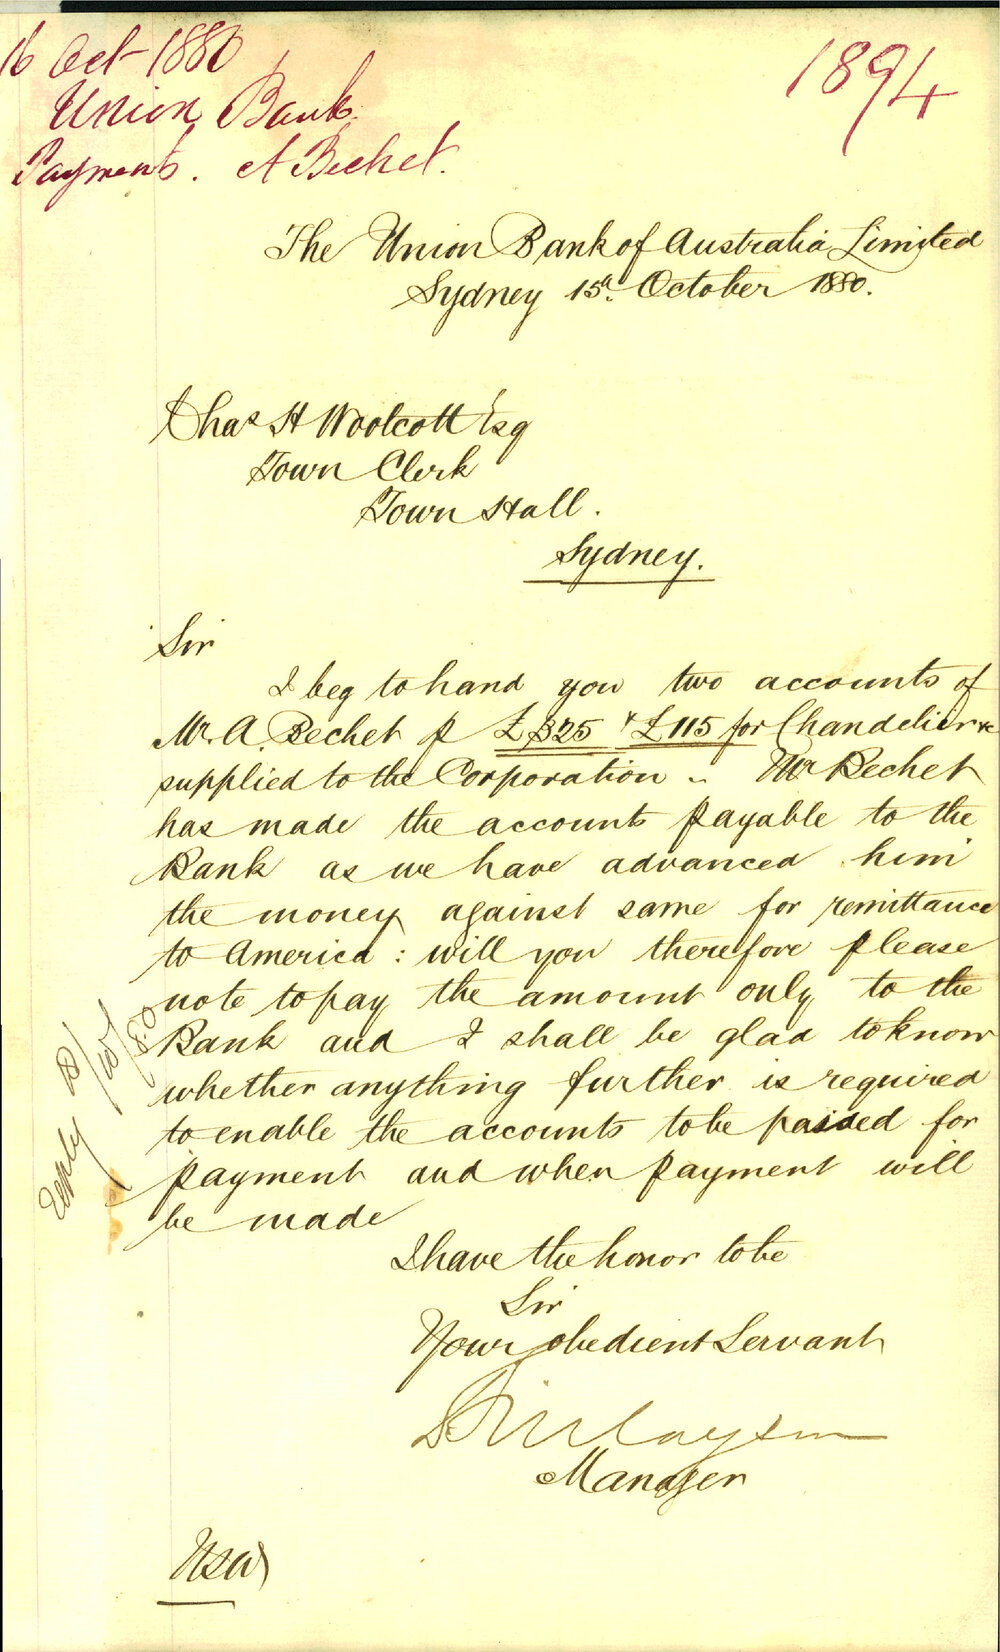 16 Oct 1880
Union Bank
Payments. A Bechet.
1894
The Union Bank of Australia Limited
Sydney 15th. October 1880.
Chas H Woolcott Esq
Town Clerk
Town Hall.
Sydney.
Sir
I beg to hand you two accounts of
Mr. A. Bechet p £325 & £115 for Chandelier &c
supplied to the Corporation. Mr Bechet
has made the accounts payable to the
Bank as we have advanced him
the money against same for remittance
to America: will you therefore please
note to pay the amount only to the
Bank and I shall be glad to know
whether anything further is required
to enable the accounts to be passed for
payment and when payment will
be made
I have the honor to be
Sir
Your obedient Servant
Finlayson
Manager
NSW
Reply